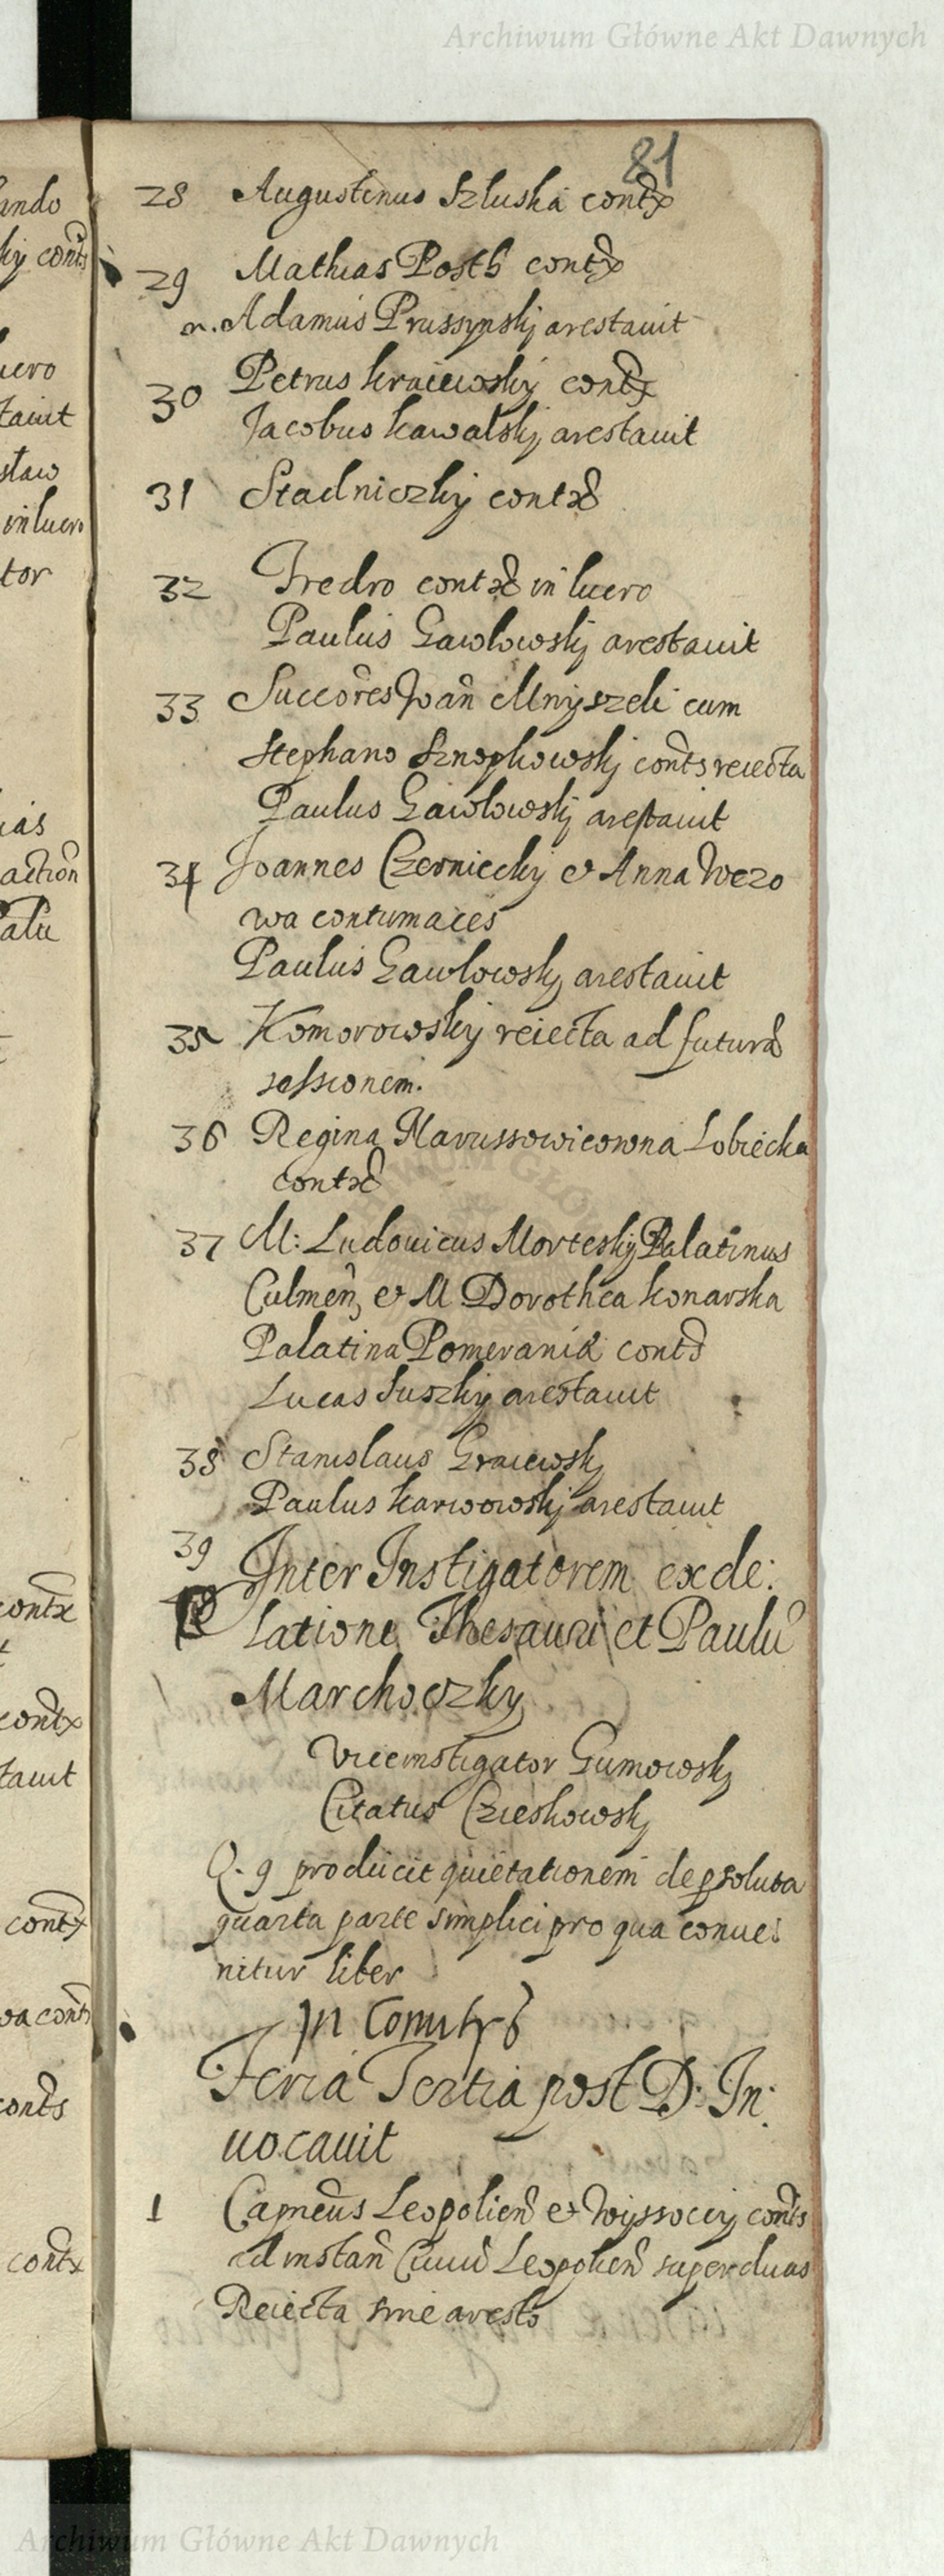 Archiwum Główne Akt Dawnych
81
28 Augustinus Szluska contx
29 Mathias Posth contx
n. Adamus Prussynskj arestauit
30 Petrus Kraiewskij contx
Jacobus Kawalskj arestauit
31 Stadniczkij contx
32 Fredro contx in lucro
Paulus Gawlowskj arestauit
33 Succores Joan Mnyszek cum
Stephano Sznopkowskj conts reiecta
Paulus Gawlowskj arestauit
34 Joannes Czernieckij et Anna Wezo
wa contumaces
Paulus Gawlowskj arestauit
35 Komorowskij reiecta ad futura
sessionem.
36 Regina Marussowicowna Lobiecka
contx
37 M: Ludouicus Morteskij Palatinus
Culmen et M Dorothea Konarska
Palatina Pomerania cont
Lucas Suszkij arestauit
38 Stanislaus Graiewskj
Paulus Karwowskj arestauit
39 Inter Instigatorem ex de:
latione Thesauri et Paulu
Marchoczkij
Viceinstigator Gumowskj
Citatus Czieskowskj
Q. 9 producit quietationem de psoluta
quarta parte simplici pro qua conue:
nitur liber
In Comitys
Feria Tertia post D: In:
uocauit
1 Capneus Leopolien et Wyssocij conts
ad instan Ciuiu Leopolien super duas
Reiecta sine aresto
ando
kij conts
uero
tauit
staw
in lucro
tor
ias
action
contx
contx
tauit
contx
wa conts
conts
contx
Archiwum Główne Akt Dawnych